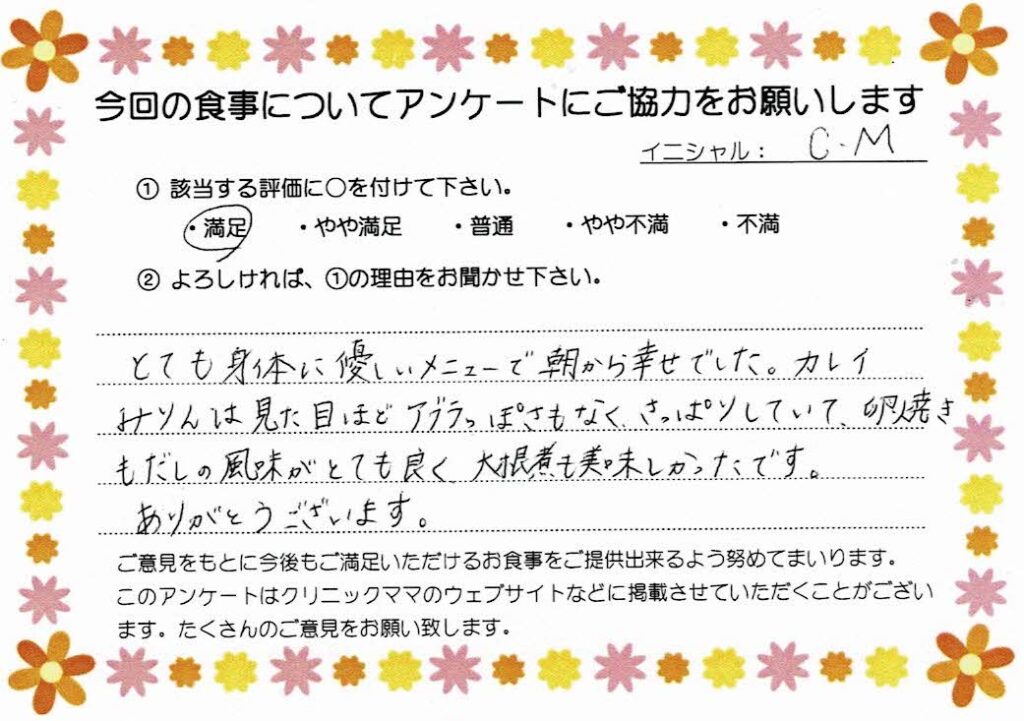 今回の食事についてアンケートにご協力をお願いします
イニシャル： C.M
① 該当する評価に〇を付けて下さい。
・満足 ・やや満足 ・普通 ・やや不満 ・不満
② よろしければ、①の理由をお聞かせ下さい。
とても身体に優しいメニューで朝から幸せでした。カレイ
みりんは見た目ほどアブラっぽさもなく、さっぱりしていて、卵焼き
もだしの風味がとても良く大根煮も美味しかったです。
ありがとうございます。
ご意見をもとに今後もご満足いただけるお食事をご提供出来るよう努めてまいります。
このアンケートはクリニックママのウェブサイトなどに掲載させていただくことがござい
ます。たくさんのご意見をお願い致します。